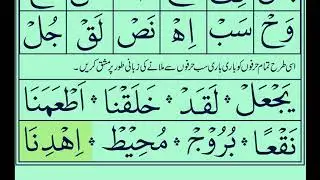 وَحْ سَبْ اِهْ نَصْ لَقْ جُلْ
اسی طرح تمام حرفوں کو باری باری سب حرفوں سے ملانے کی زبانی طور پر مشق کریں۔
يَجْعَلْ لَقَدْ خَلَقْنَا اَطْعَمَنَا
نَقْعًا بُرُوْجٌ مُحِيْطٌ اِهْدِنَا